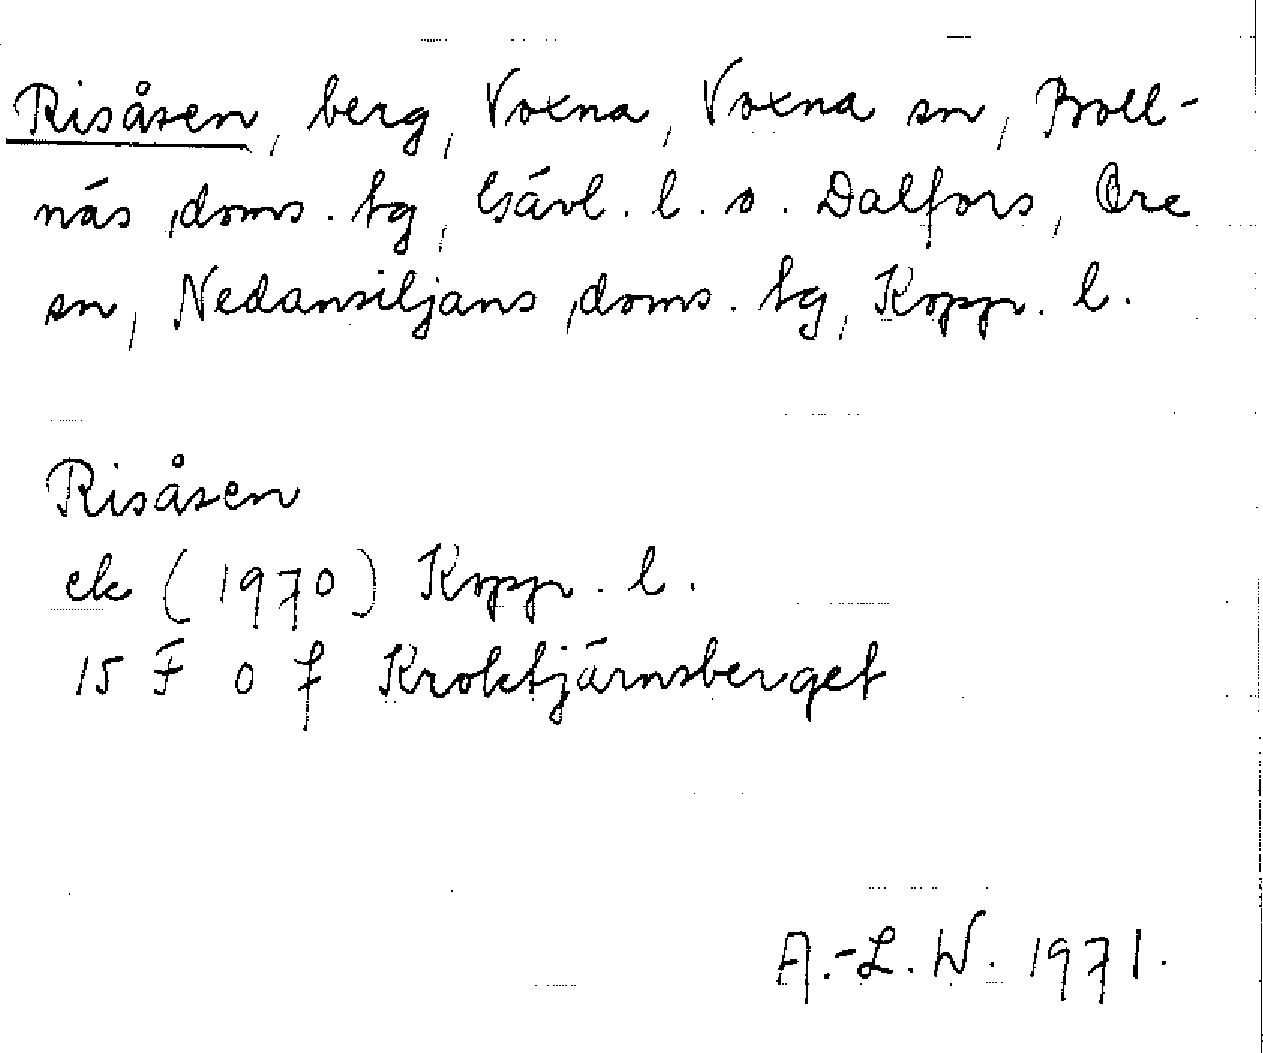 Risåsen, berg, Voxna, Voxna sn, Boll-
näs doms. tg, Gävl. l. o. Dalfors, Ore
sn, Nedansiljans doms. tg, Kopp. l.
Risåsen
ek (1970) Kopp. l.
15 F 0 f Kroktjärnsberget
A.-L. W. 1971.